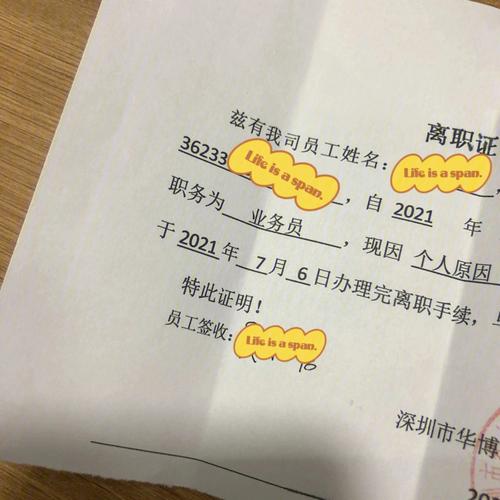 离职证
兹有我司员工姓名: Life is a span.
36233 Life is a span. , 自 2021 年
职务为 业务员 , 现因 个人原因
于 2021 年 7 月 6 日办理完离职手续,
特此证明!
员工签收: Life is a span.
深圳市华博